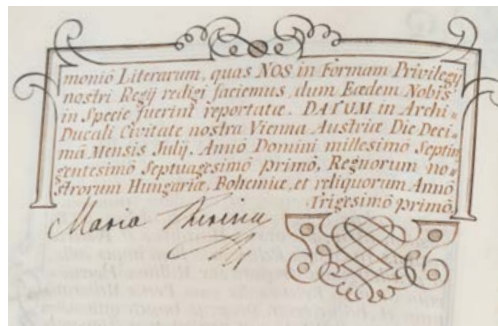 moniô Literarum, quas NOS in Formam Privilegij
nostri Regij redigi faciemus, dum Eædem Nobis
in Specie fuerint reportatæ. DATUM in Archi-
Ducali Civitate nostra Vienna Austriæ Die Deci-
mâ Mensis Julij. Annô Domini millesimô Septin
gentesimô Septuagesimô primô, Regnorum no-
strorum Hungariæ, Bohemiæ, et reliquorum Annô
Trigesimô primô,
Maria Theresia